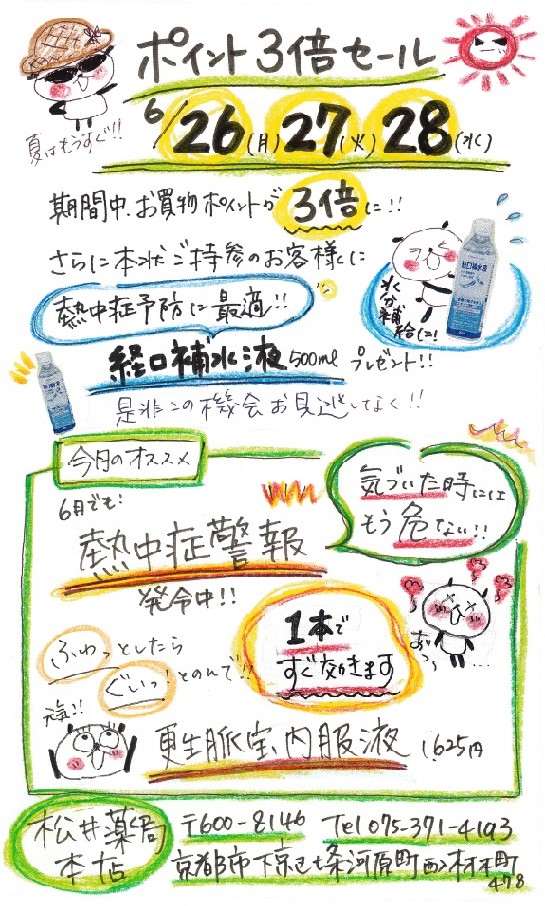 ポイント3倍セール
6/26(月)27(火)28(水)
夏はもうすぐ!!
期間中、お買物ポイントが3倍に!!
さらに本状ご持参のお客様に
水分補給に!
経口補水液
熱中症予防に最適!!
経口補水液500mlプレゼント!!
是非この機会お見逃しなく!!
今月のオススメ
気づいた時には
もう危ない!!
6月でも
熱中症警報
発令中!!
1本で
すぐ効きます
ふわっとしたら
ぐいっ!とのんで!!
元気!!
更生脈宝内服液 1,625円
松井薬局
本店
〒600-8146 Tel 075-371-4193
京都市下京区七条河原町西入材木町
478